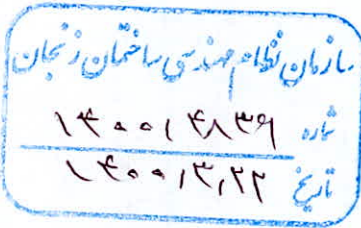 سازمان نظام مهندسی ساختمان زنجان
شماره ۱۴۰۰۱۴۸۳۹
تاریخ ۱۴۰۰/۳/۲۲